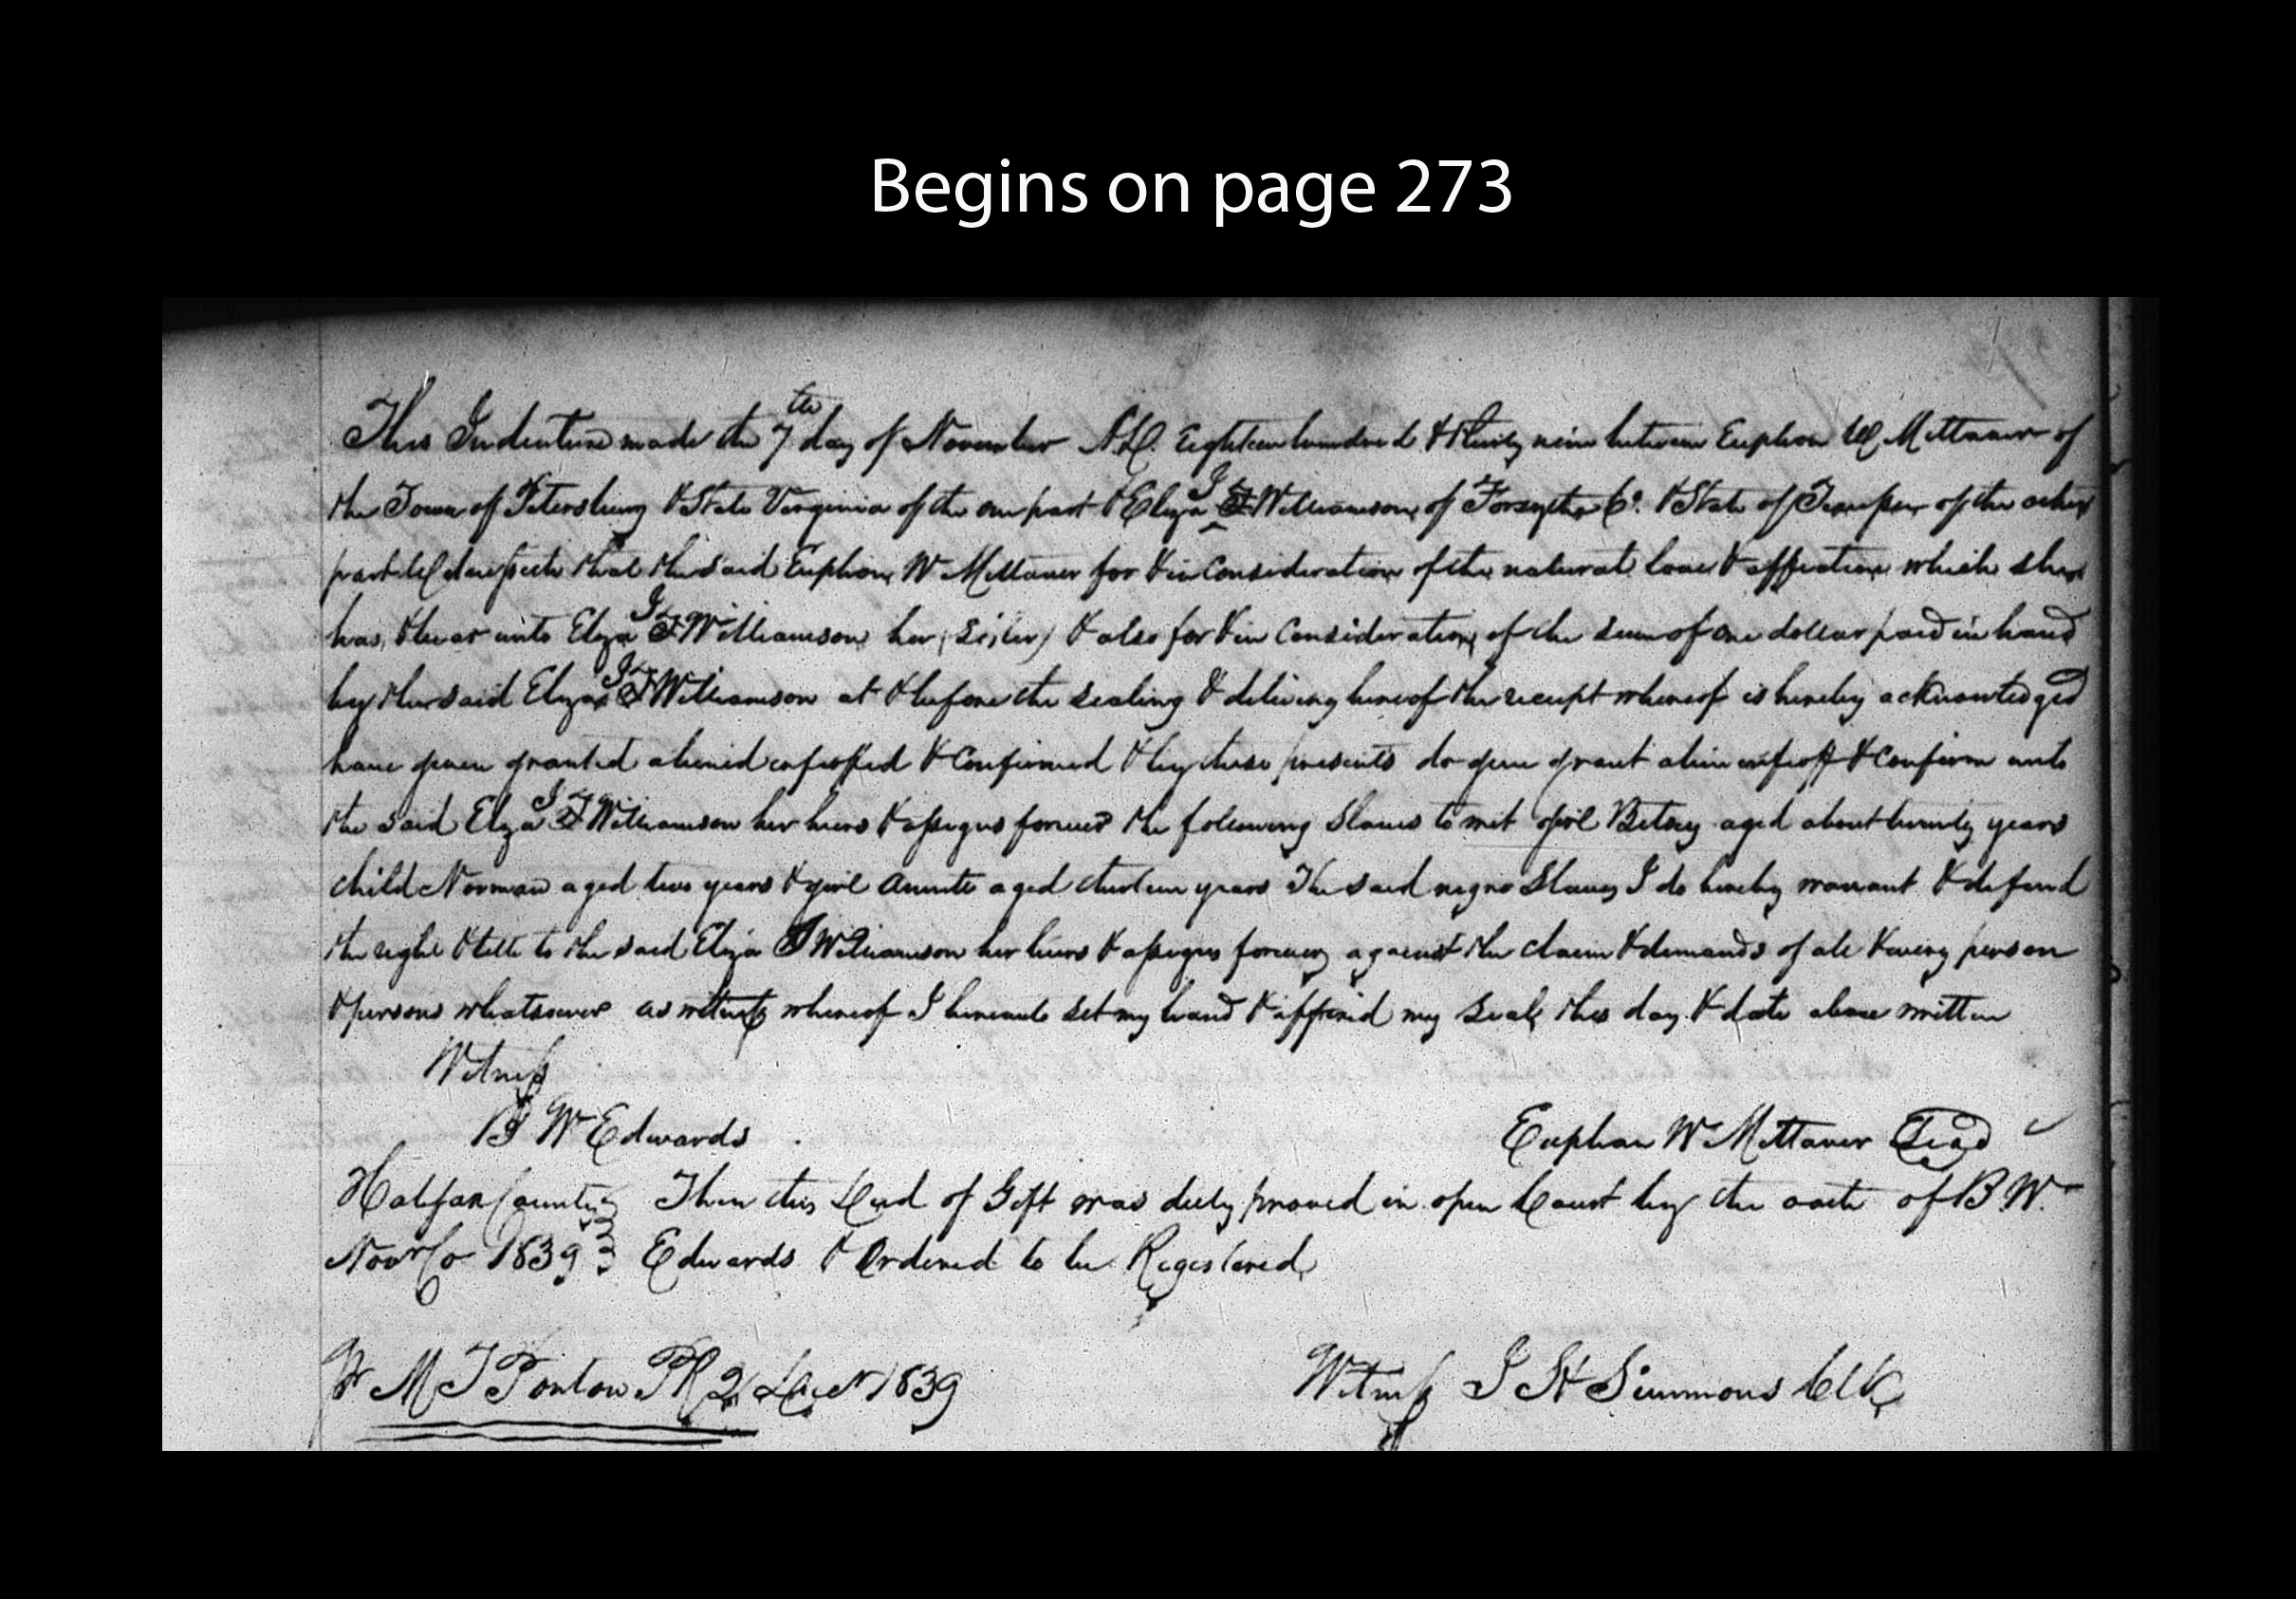 Begins on page 273
This Indenture made the 7th day of November A.D. Eighteen hundred & thirty nine between Euphan W Mettauer of
the Town of Petersburg & State Virginia of the one part & Eliza J Williamson of Forsythe Co. & State of of the other
part Witnesseth that the said Euphan W Mettauer for & in Consideration of the natural love & affection which she
has & bears unto Eliza J Williamson her (Sister) & also for & in Consideration of the sum of one dollar paid in hand
by the said Eliza J Williamson at & before the sealing & delivery hereof the receipt whereof is hereby acknowledged
have given granted aliened enfeoffed & Confirmed & by these presents do give grant alien enfeoff & Confirm unto
the said Eliza J Williamson her heirs & assigns forever the following Slaves to wit girl Betsey aged about twenty years
child Norman aged two years & girl aged thirteen years The said negro Slaves I do hereby warrant & defend
the right & title to the said Eliza J Williamson her heirs & assigns forever against the claim & demands of all & every person
& persons whatsoever as witness whereof I hereunto set my hand & affixed my Seal this day & date above written
Witness
B W Edwards
Euphan W Mettauer Seal
Halifax County } Then this Deed of Gift was duly proved in open Court by the oath of B W.
Novr Co 1839 } Edwards & Ordered to be Registered
M T Ponton PR 2 Decr 1839
Witness J H Simmons Clk